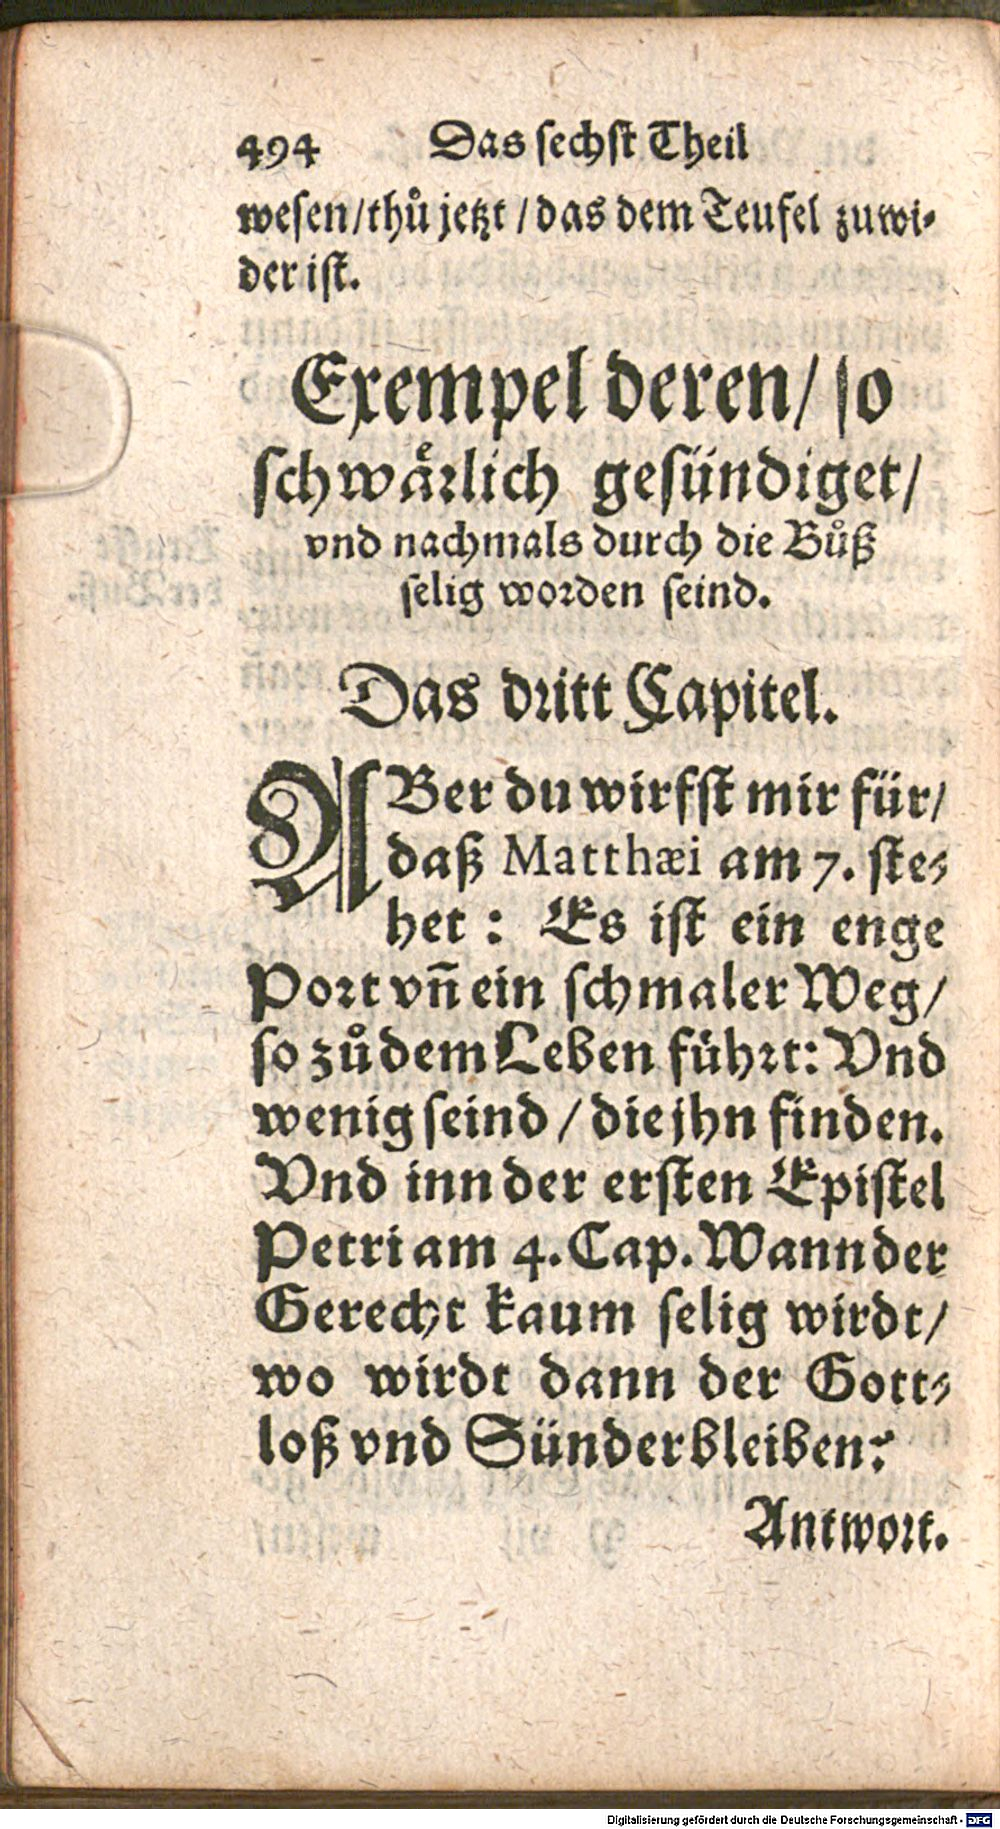 494 Das sechst Theil
wesen/thů jetzt / das dem Teufel zuwi-
der ist.
Exempel deren/ so
schwaͤrlich gesündiget/
vnd nachmals durch die Bůß
selig worden seind.
Das dritt Capitel.
ABer du wirfst mir für/
daß Matthæi am 7. ste-
het : Es ist ein enge
Port vñ ein schmaler Weg/
so zů dem Leben führt: Vnd
wenig seind / die jhn finden.
Vnd inn der ersten Epistel
Petri am 4. Cap. Wann der
Gerecht kaum selig wirdt/
wo wirdt dann der Gott-
loß vnd Sünder bleiben?
Antwort.
Digitalisierung gefördert durch die Deutsche Forschungsgemeinschaft - DFG